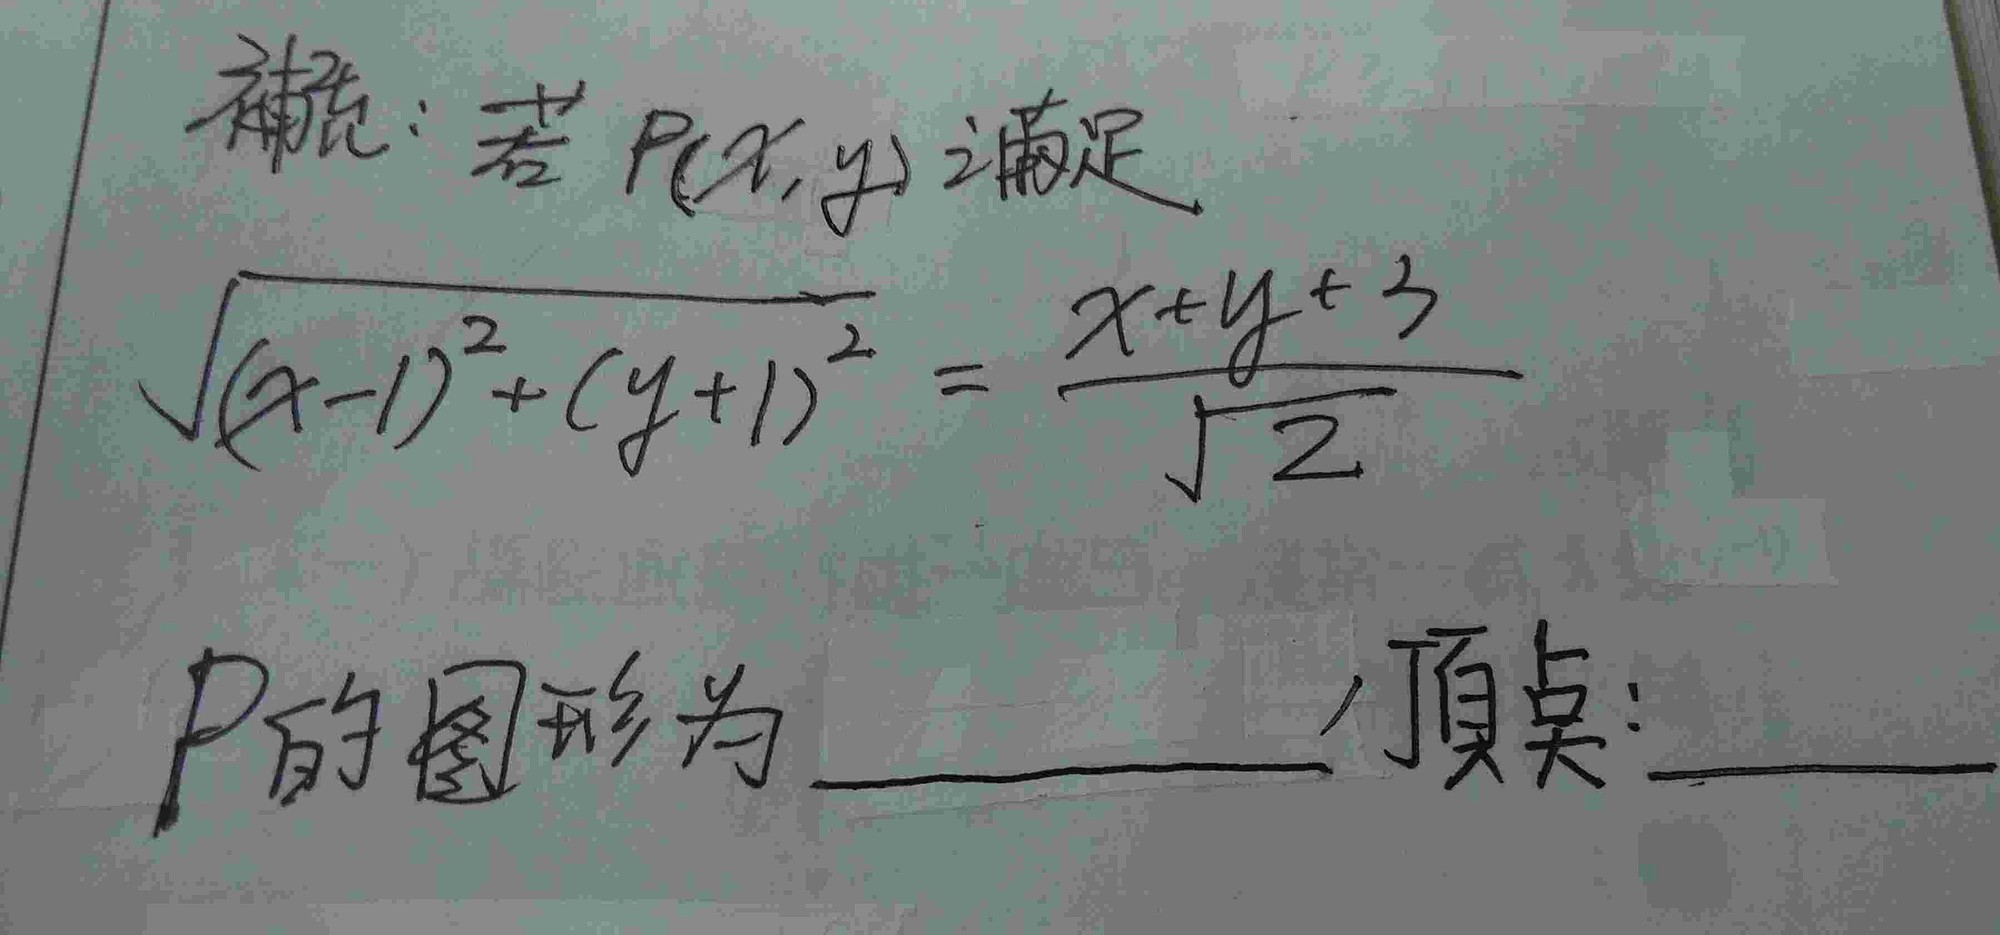 補充：若 P(x, y) 滿足
√((x-1)²+(y+1)²) = (x+y+3)/√2
P的圖形为________，頂点：________